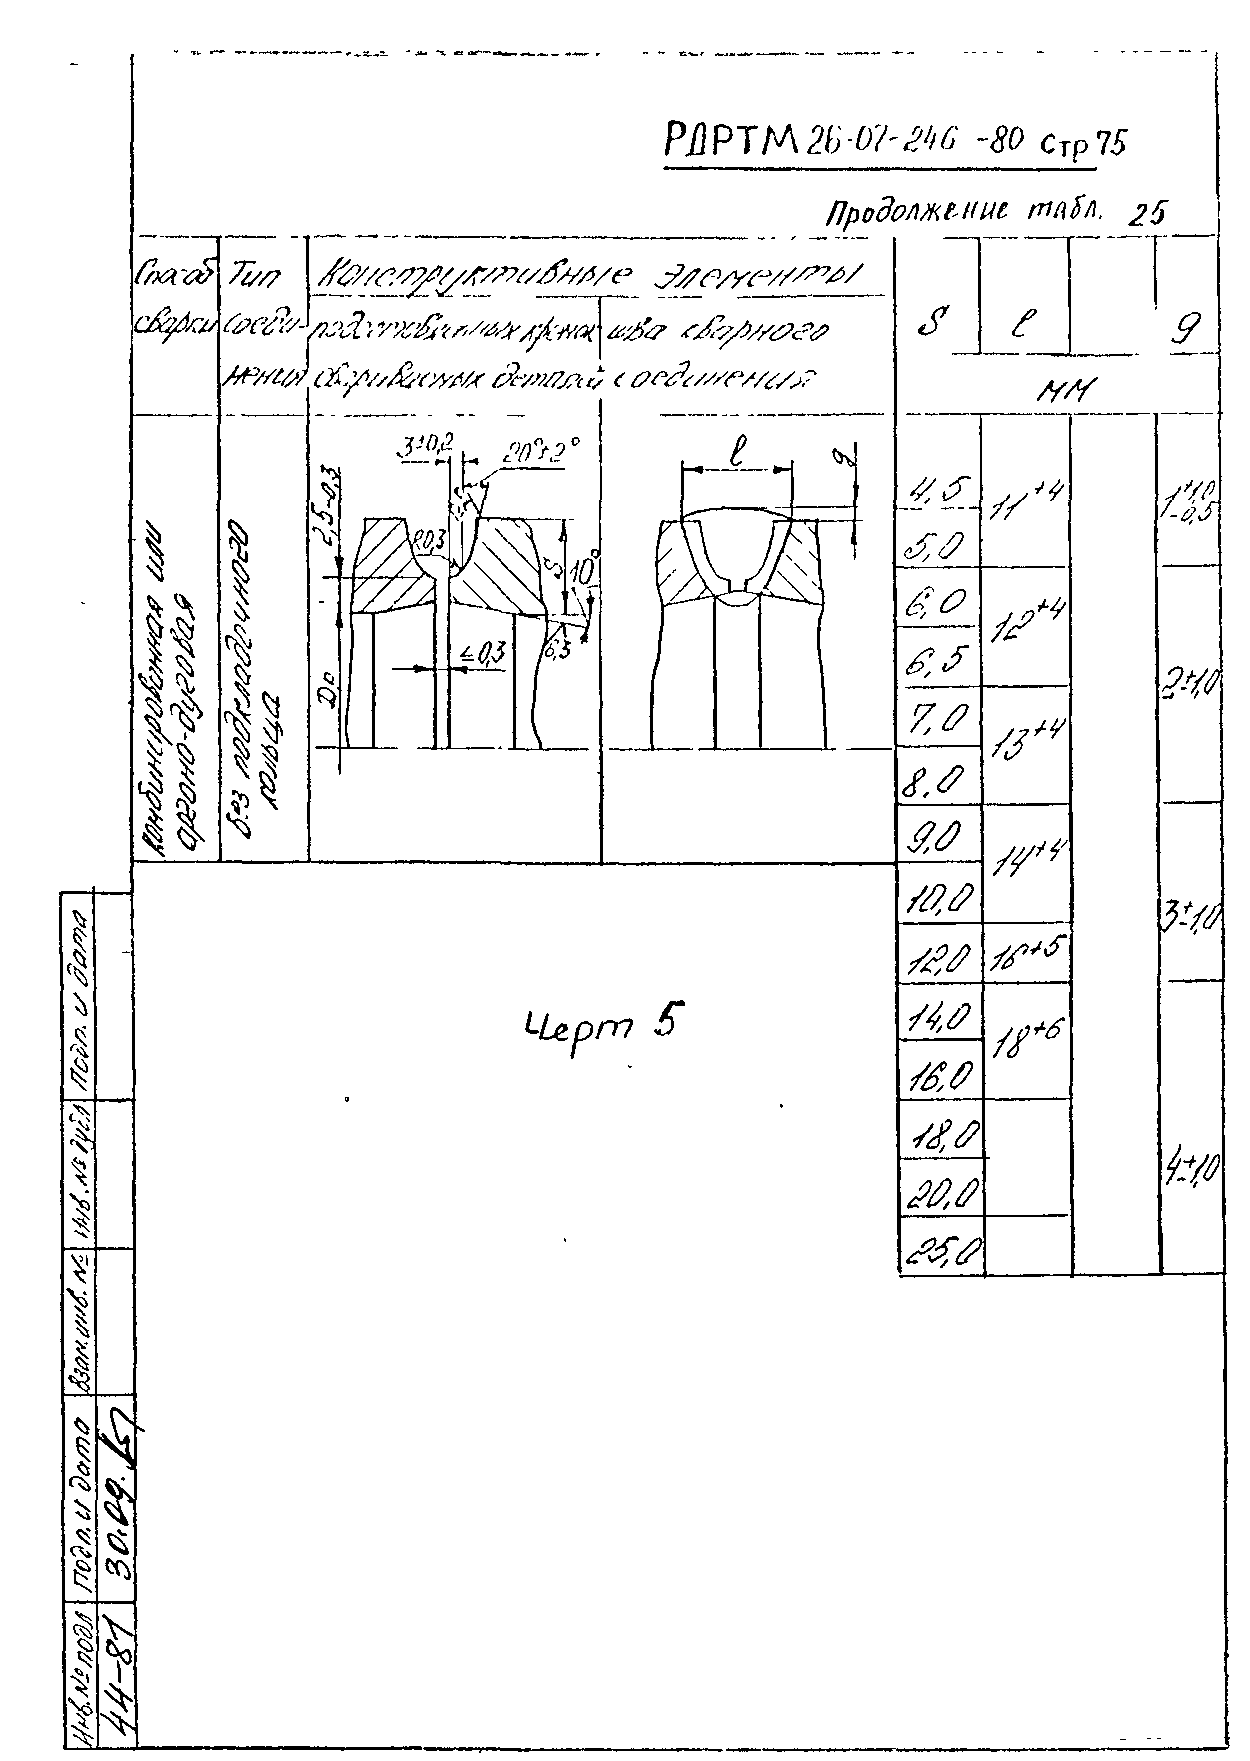 РДРТМ 26-07-246-80 Стр 75
Продолжение табл. 25
Способ сварки
Тип соединения
Конструктивные элементы
подготовленных кромок свариваемых деталей
шва сварного соединения
S
l
g
мм
Комбинированная или
аргоно-дуговая
без подкладочного
кольца
3±0,2
20°±2°
2,5-0,3
R0,3
S
10°
6,3
≤0,3
Dр
l
g
4,5
5,0
6,0
6,5
7,0
8,0
9,0
10,0
12,0
14,0
16,0
18,0
20,0
25,0
11+4
12+4
13+4
14+4
16+5
18+6
1+1,0 -0,5
2±1,0
3±1,0
4±1,0
Черт 5
Подп. и дата
Инв. № дубл
Взам. инв. №
Подп. и дата
30.09.
Инв. № подл
44-81